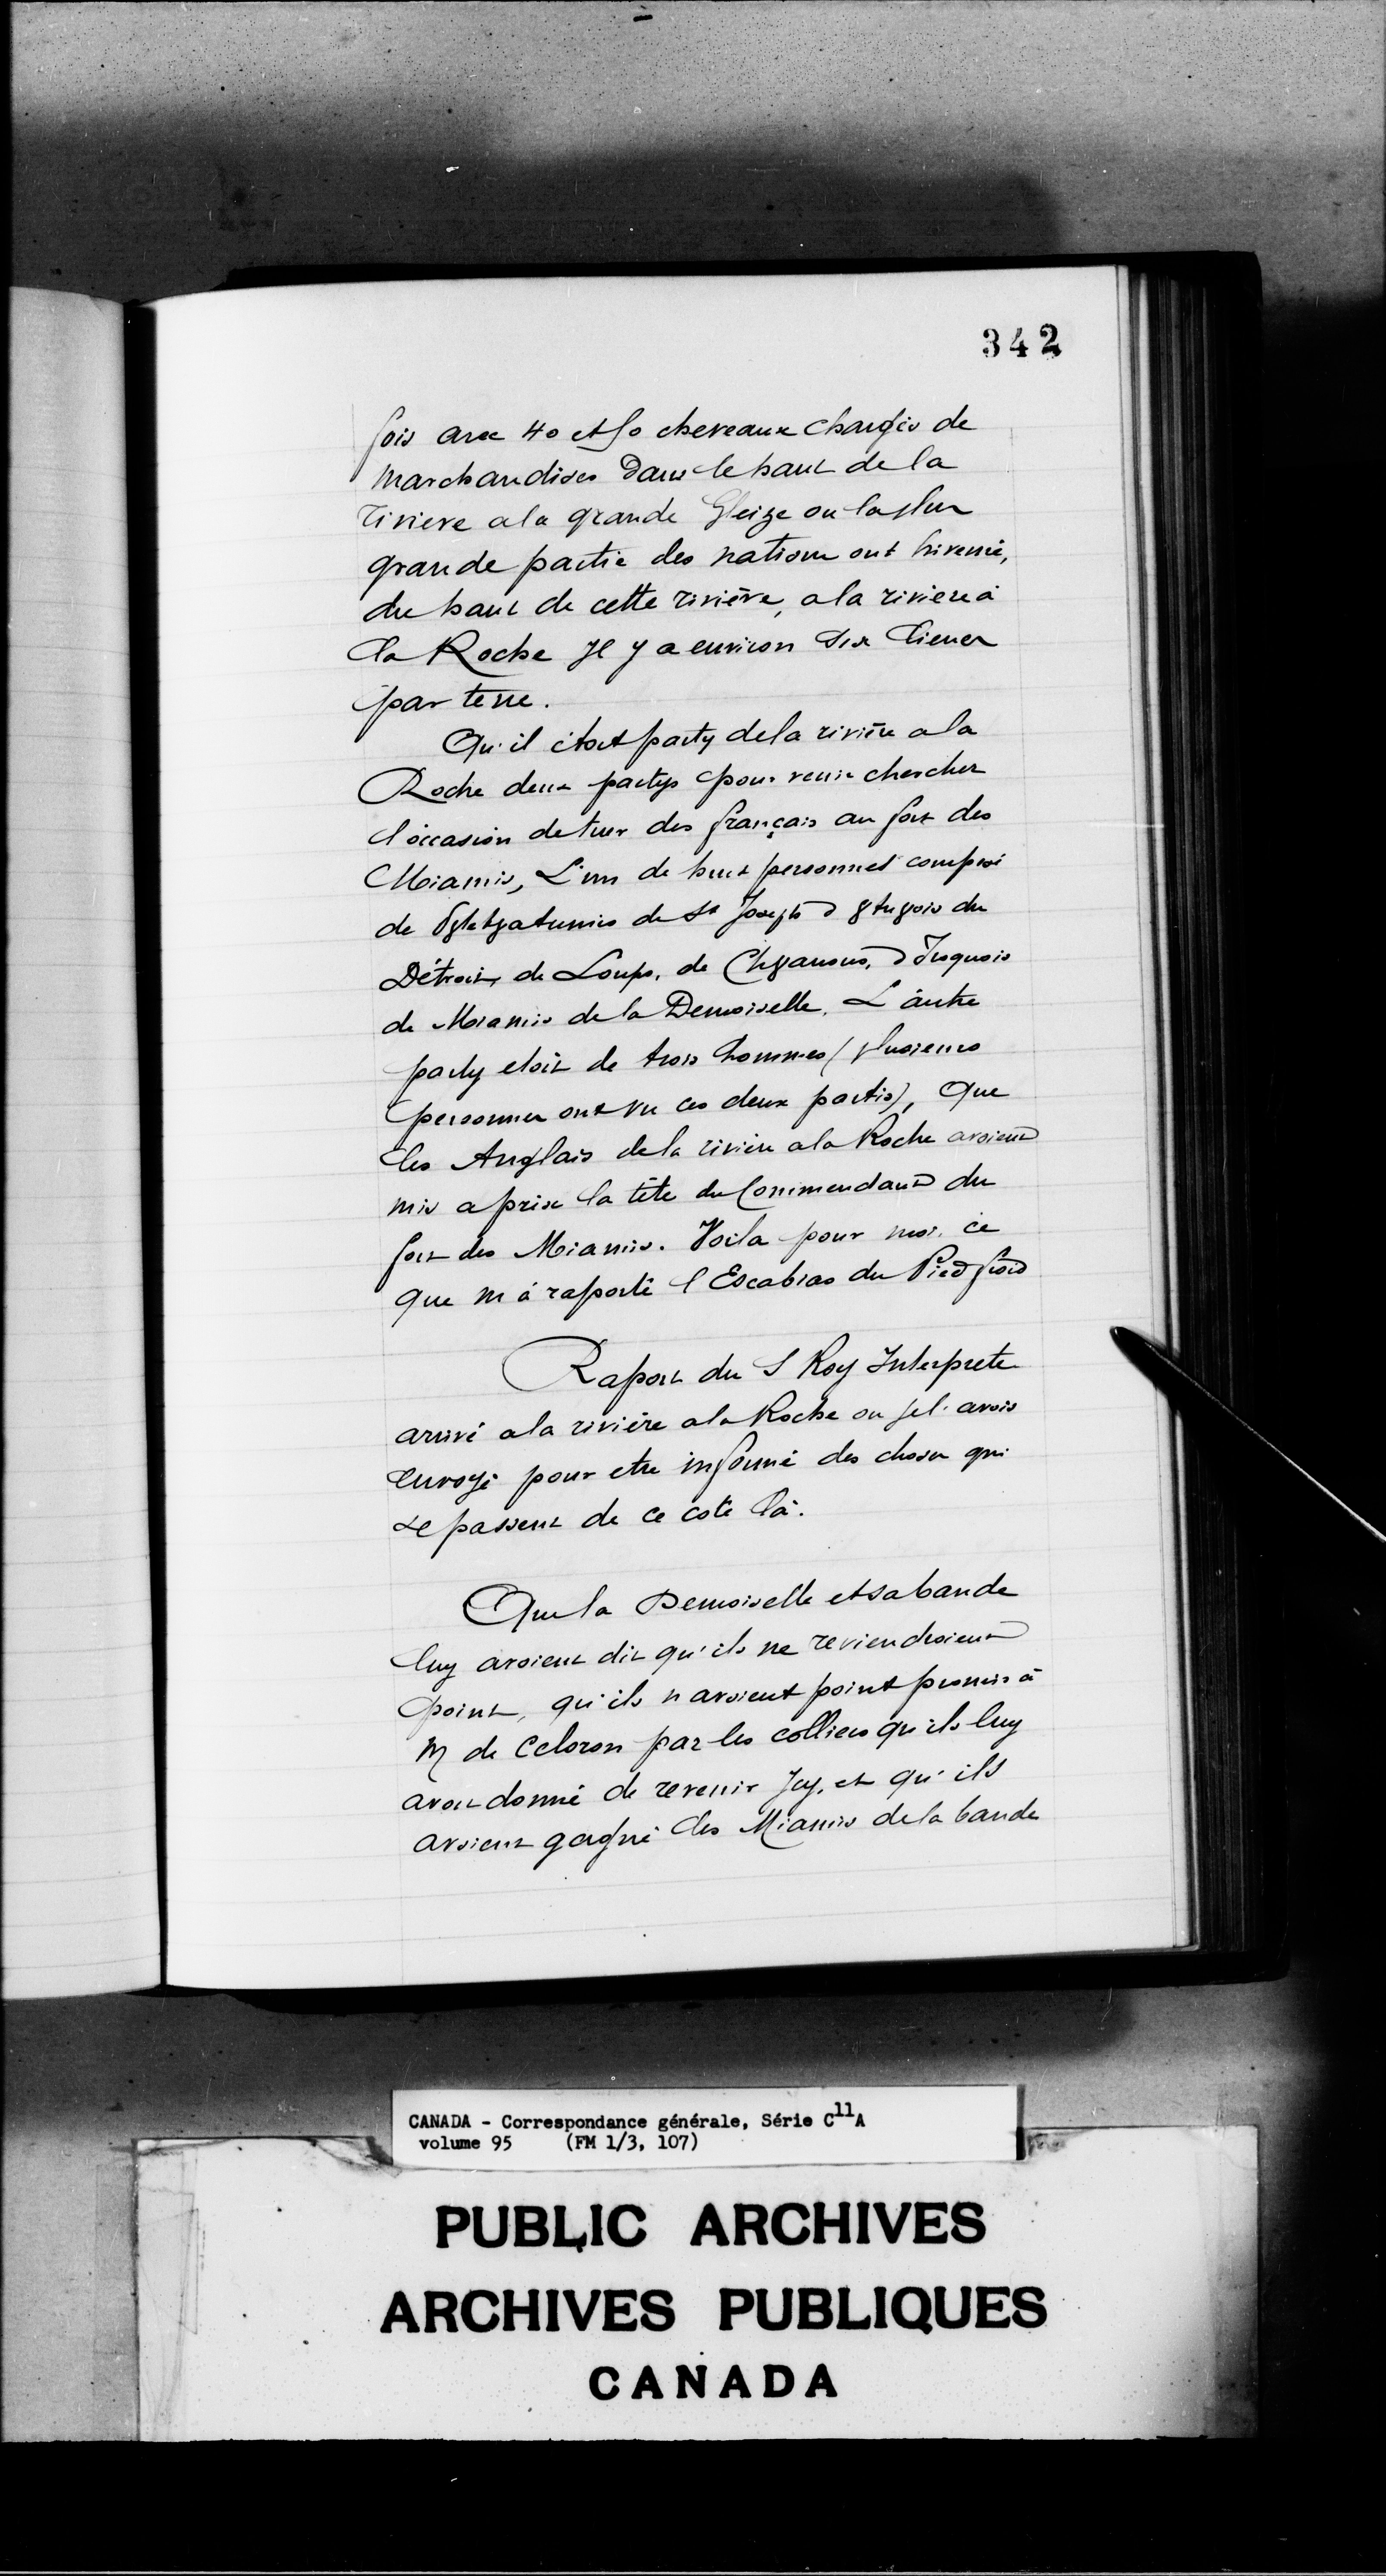 342
fois avec 40 et 50 cheveaux chargés de
marchandises dans le haut de la
riviere a la grande Gleize ou la plus
grande partie des nations ont hiverné,
du haut de cette rivière, a la riviere à
la Roche Jl y a environ dix lieues
par terre.
Qu'il étoit party de la rivière a la
Roche deux partys pour venir chercher
l'occasion de tuer des français au fort des
Miamis, L'un de huit personnes composé
de de St Joseph d du
Détroit, de Loups, de d'Iroquois
de Miamis de la Demoiselle. L'autre
party etoit de trois hommes (plusieurs
personnes ont vu ces deux partis), Que
les Anglais de la rivière a la Roche avoient
mis a prix la tête du Commendant du
fort des Miamis. Voila pour moi ce
que m'a raporté l'Escabias du Pied froid
Raport du S Roy Interprete
arrivé a la rivière a la Roche ou je l'avois
envoyé pour etre informé des choses qui
se passent de ce coté là.
Que la Demoiselle et sa bande
luy avoient dit qu'ils ne reviendroient
point, qu'ils n avoient point promis à
M de Celoron par les colliers qu'ils luy
avoit donné de revenir Jcy, et qu'ils
avoient gagné les Miamis de la bande
CANADA - Correspondance générale, Série C11A
volume 95 (FM 1/3, 107)
PUBLIC ARCHIVES
ARCHIVES PUBLIQUES
CANADA